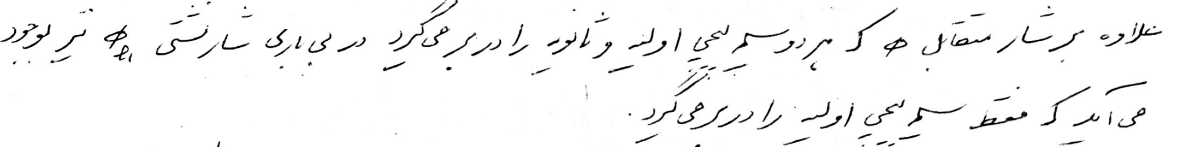 علاوه بر شار متقابل Φ که هر دو سیم پیچی اولیه و ثانویه را در بر می گیرد در بی باری شار نشتی Φ نیز بوجود
می آید که فقط سیم پیچی اولیه را در بر می گیرد.